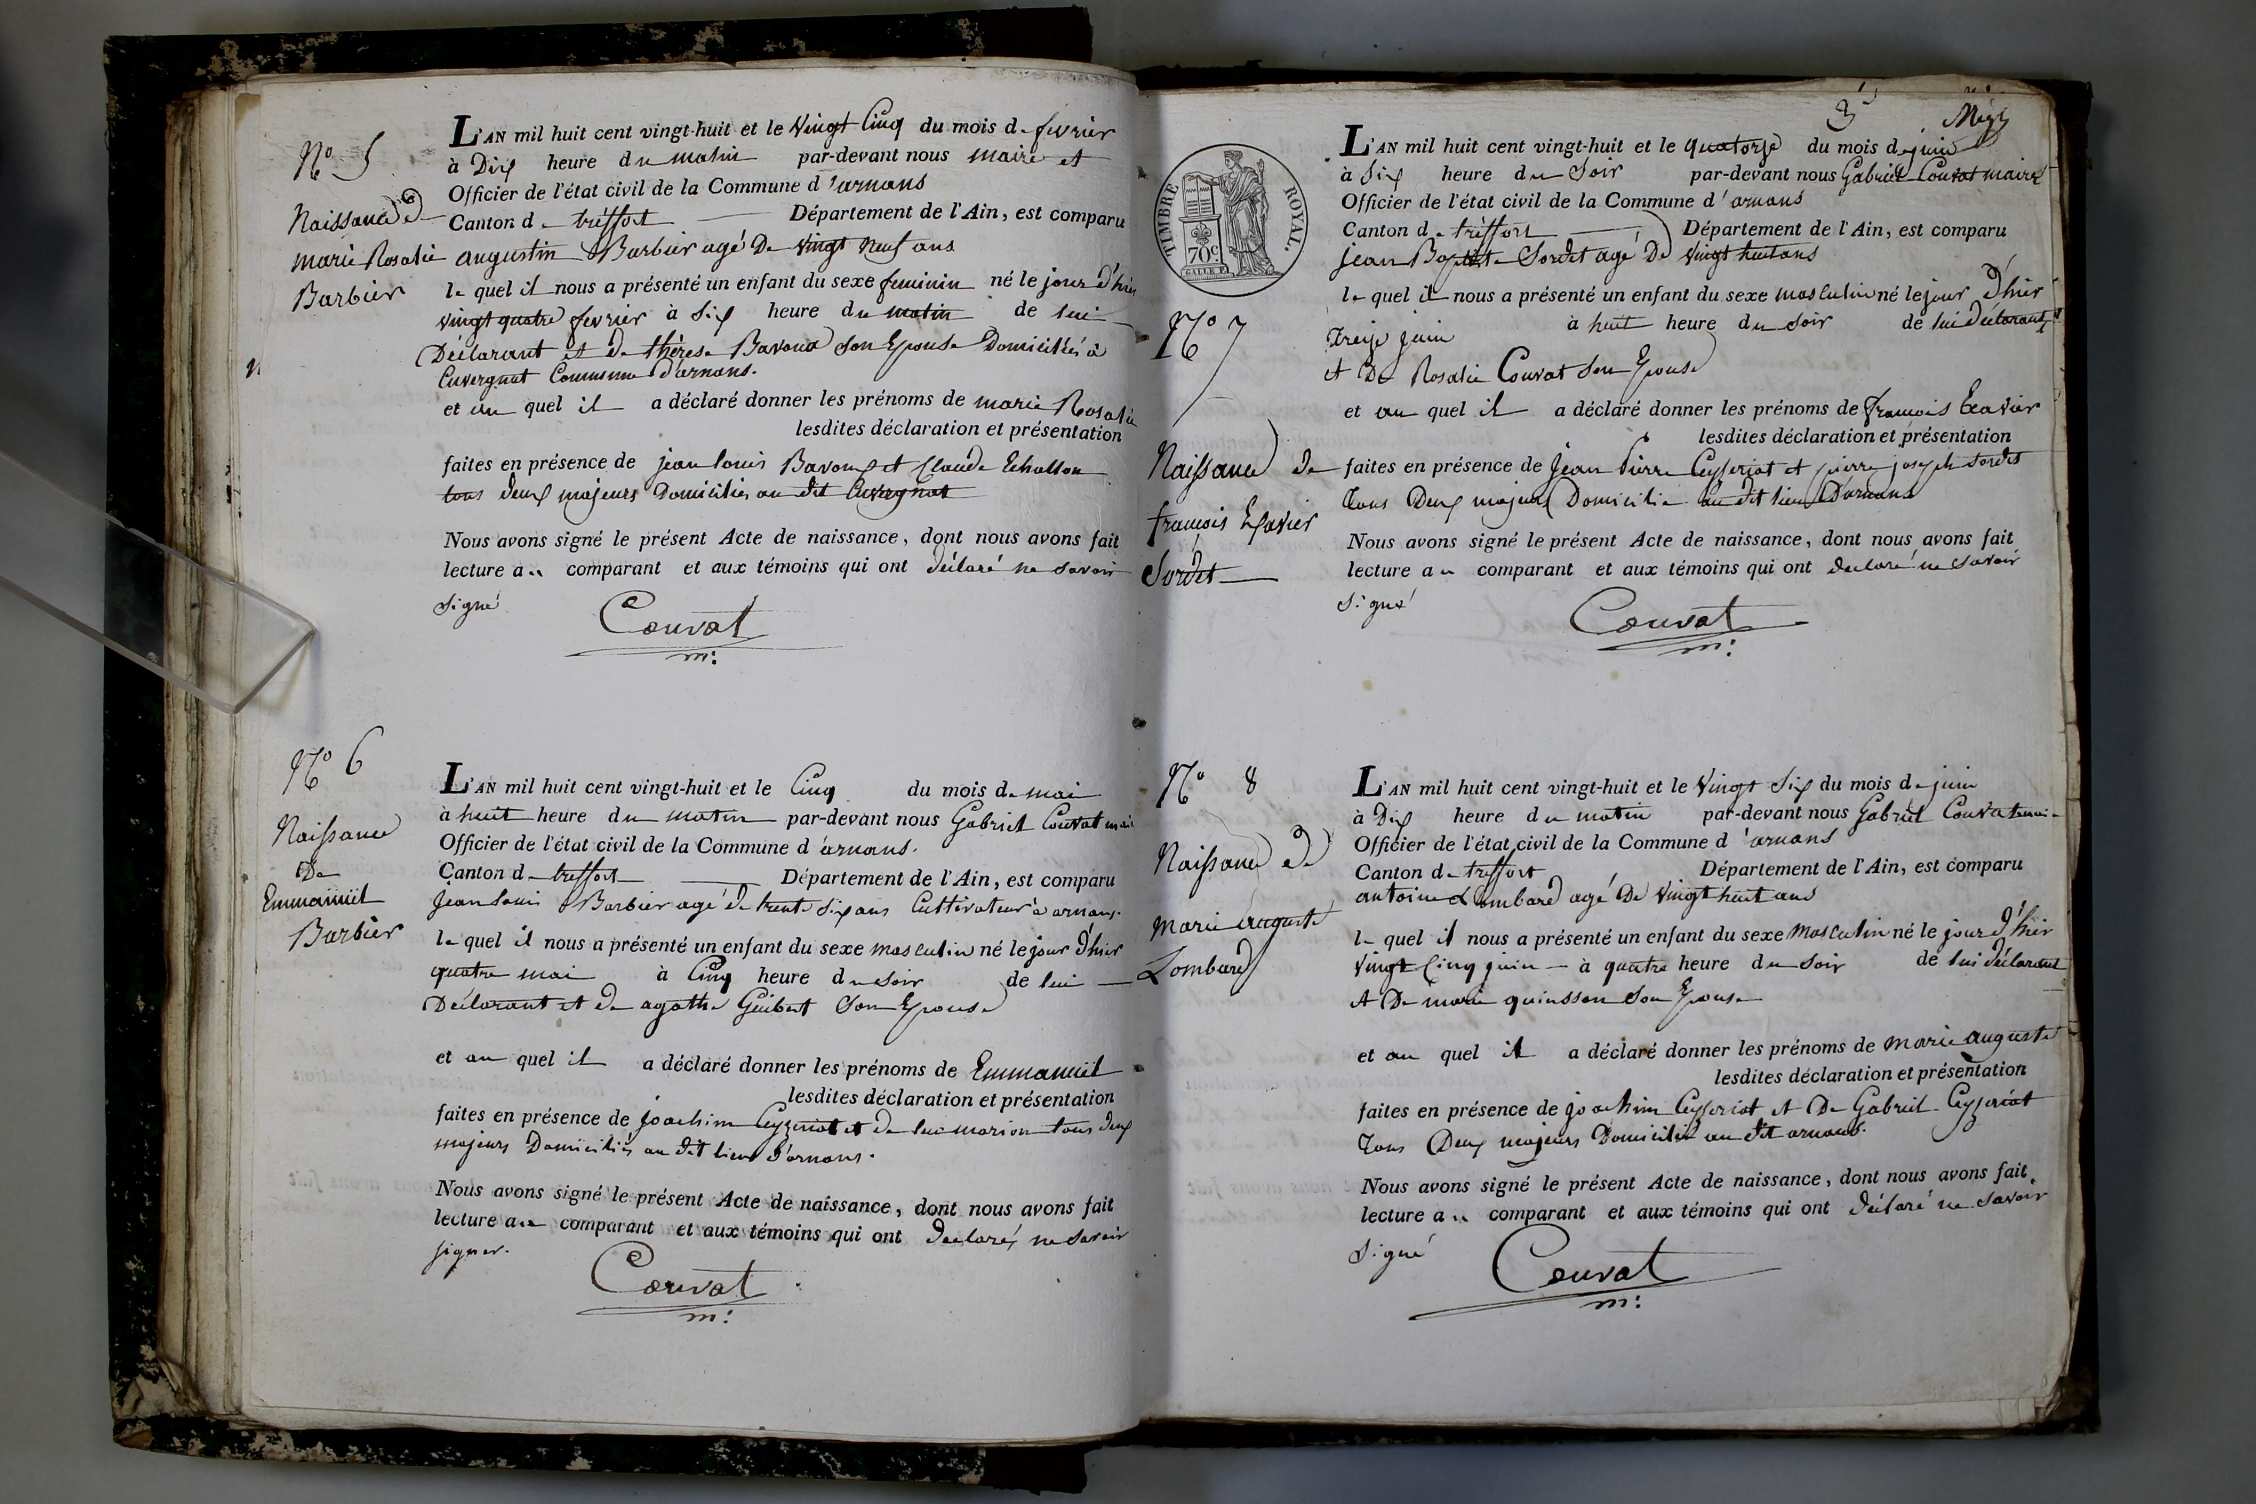 N.o 5
Naissance de
marie Rosalie
Barbier
L'AN mil huit cent vingt-huit et le vingt Cinq du mois de fevrier
à Dix heure du matin par-devant nous maire et
Officier de l'état civil de la Commune d'arnans
Canton de treffort Département de l'Ain, est comparu
augustin Barbier agé De vingt neuf ans
le quel il nous a présenté un enfant du sexe feminin né le jour d'hier
vingt quatre fevrier à Six heure du matin de lui
Déclarant et de thérese Bavoux Son Epouse Domiciliés à
Cuvergnat Commune d'arnans.
et au quel il a déclaré donner les prénoms de marie Rosalie
lesdites déclaration et présentation
faites en présence de jean louis Bavoux et Claude Echallon
tous deux majeurs Domiciliés au dit Cuvergnat
Nous avons signé le présent Acte de naissance, dont nous avons fait
lecture au comparant et aux témoins qui ont déclaré ne savoir
signé
Couvat
m:
N.o 6
Naissance
De
Emmanuel
Barbier
L'AN mil huit cent vingt-huit et le Cinq du mois de mai
à huit heure du matin par-devant nous Gabriel Couvat maire
Officier de l'état civil de la Commune d'arnans.
Canton de treffort Département de l'Ain, est comparu
Jean louis Barbier agé de trente six ans Cultivateur à arnans.
le quel il nous a présenté un enfant du sexe masculin né le jour d'hier
quatre mai à Cinq heure du soir de lui
Déclarant et de agathe Guibert Son Epouse
et au quel il a déclaré donner les prénoms de Emmanuel
lesdites déclaration et présentation
faites en présence de joachim Ceyzeriat et de luc marion tous deux
majeurs Domiciliés au dit lieu d'arnans.
Nous avons signé le présent Acte de naissance, dont nous avons fait
lecture au comparant et aux témoins qui ont declarés ne savoir
signer.
Couvat
m:
3
TIMBRE ROYAL.
70c
N.o 7
Naissance de
françois Exavier
Sordet
L'AN mil huit cent vingt-huit et le quatorze du mois de juin
à Six heure du Soir par-devant nous Gabriel Couvat maire
Officier de l'état civil de la Commune d'arnans
Canton de treffort Département de l'Ain, est comparu
jean Baptiste Sordet agé De vingt huit ans
le quel il nous a présenté un enfant du sexe masculin né le jour d'hier
treize juin à huit heure du soir de lui déclarant
et De Rosalie Couvat Son Epouse
et au quel il a déclaré donner les prénoms de françois Exavier
lesdites déclaration et présentation
faites en présence de Jean Pierre Ceyseriat et pierre joseph Sordet
tous Deux majeurs Domicilié au dit lieu D'arnans
Nous avons signé le présent Acte de naissance, dont nous avons fait
lecture au comparant et aux témoins qui ont declaré ne savoir
signé
Couvat
m:
N.o 8
Naissance de
marie auguste
Lombard
L'AN mil huit cent vingt-huit et le vingt Six du mois de juin
à Dix heure du matin par-devant nous Gabriel Couvat maire
Officier de l'état civil de la Commune d'arnans
Canton de treffort Département de l'Ain, est comparu
antoine Lombard agé De vingt huit ans
le quel il nous a présenté un enfant du sexe masculin né le jour d'hier
vingt Cinq juin à quatre heure du soir de lui déclarant
et De marie quinsson Son Epouse
et au quel il a déclaré donner les prénoms de marie auguste
lesdites déclaration et présentation
faites en présence de joachim Ceyseriat et De Gabriel Ceyzeriat
tous Deux majeurs Domicilié au dit arnans.
Nous avons signé le présent Acte de naissance, dont nous avons fait
lecture au comparant et aux témoins qui ont déclaré ne savoir
signé
Couvat
m: